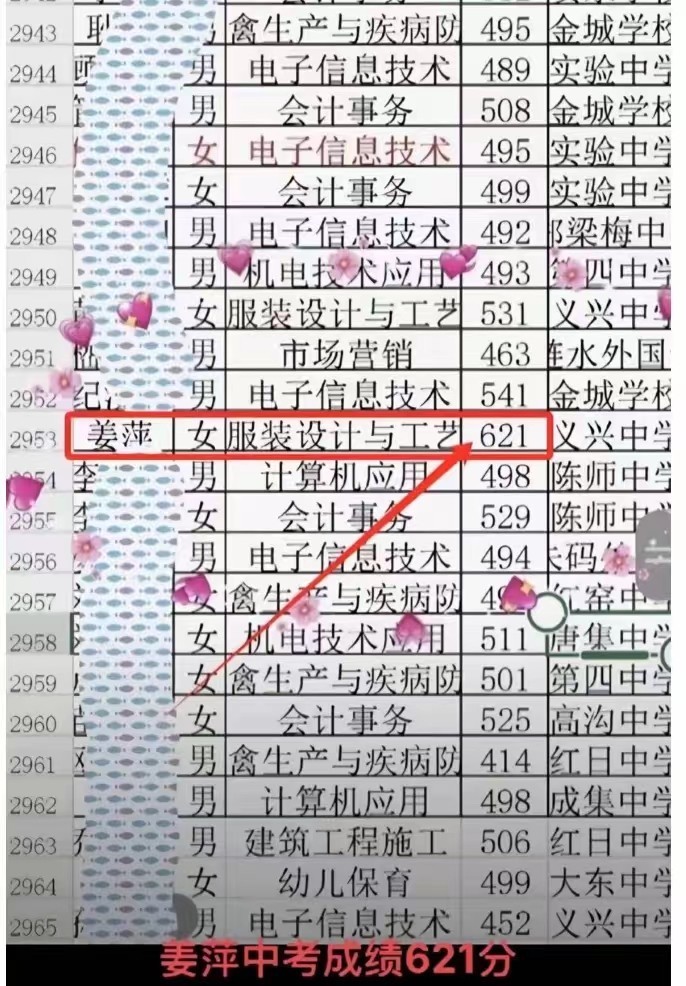 2943 耶 男 禽生产与疾病防 495 金城学校
2944 顾 男 电子信息技术 489 实验中学
2945 男 会计事务 508 金城学校
2946 女 电子信息技术 495 实验中学
2947 女 会计事务 499 实验中学
2948 男 电子信息技术 492 郑梁梅中
2949 男 机电技术应用 493 第四中学
2950 女 服装设计与工艺 531 义兴中学
2951 男 市场营销 463 涟水外国
2952 纪 男 电子信息技术 541 金城学校
2953 姜萍 女 服装设计与工艺 621 义兴中学
2954 李 男 计算机应用 498 陈师中学
2955 李 女 会计事务 529 陈师中学
2956 男 电子信息技术 494 朱码
2957 女 禽生产与疾病防 红窑中学
2958 女 机电技术应用 511 唐集中学
2959 女 禽生产与疾病防 501 第四中学
2960 女 会计事务 525 高沟中学
2961 男 禽生产与疾病防 414 红日中学
2962 男 计算机应用 498 成集中学
2963 男 建筑工程施工 506 红日中学
2964 女 幼儿保育 499 大东中学
2965 男 电子信息技术 452 义兴中学
姜萍中考成绩621分